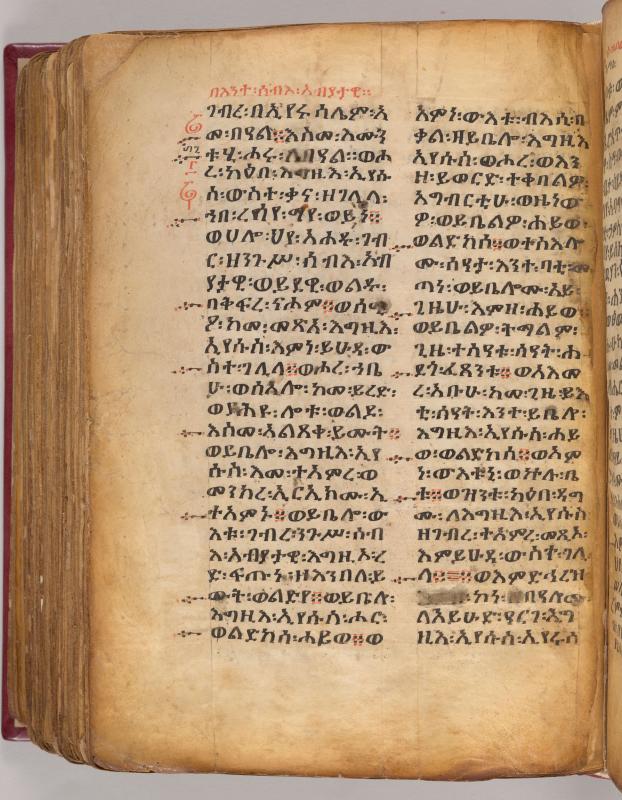 በእንተ፡ሰብአ፡አብያታዊ።
ገብረ፡በኢየሩሳሌም፡አ
መ፡በዓል።እስመ፡እሙን
ቱሂ፡ሖሩ፡ለበዓል።ወሖ
ረ፡ካዕበ፡እግዚእ፡ኢየሱ
ስ፡ውስተ፡ቃና፡ዘገሊላ፡
ኀበ፡ረሰየ፡ማየ፡ወይነ።
ወሀሎ፡ህየ፡አሐዱ፡ገብ
ር፡ዘንጉሥ፡ሰብአ፡አብ
ያታዊ፡ወይደዊ፡ወልዱ፡
በቅፍረ፡ናሖም።ወሰሚ
ዖ፡ከመ፡መጽአ፡እግዚእ፡
ኢየሱስ፡እምነ፡ይሁዳ፡ው
ስተ፡ገሊላ።ወሖረ፡ኀቤ
ሁ፡ወሰአሎ፡ከመ፡ይረድ፡
ወያሕዩ፡ሎቱ፡ወልዶ፡
እስመ፡አልጸቀ፡ይሙት።
ወይቤሎ፡እግዚእ፡ኢየ
ሱስ፡እመ፡ተአምረ፡ወ
መንክረ፡ኢርኢክሙ፡ኢ
ተአምኑ።ወይቤሎ፡ው
እቱ፡ገብረ፡ንጉሥ፡ሰብ
አ፡አብያታዊ፡እግዚኦ፡ረ
ድ፡ፍጡነ፡ዘእንበለ፡ይ
ሙት፡ወልድየ።ወይቤሎ፡
እግዚእ፡ኢየሱስ፡ሑር፡
ወልድከሰ፡ሐይወ።ወ
አምነ፡ውእቱ፡ብእሲ፡በ
ቃል፡ዘይቤሎ፡እግዚእ
ኢየሱስ፡ወሖረ፡ወእን
ዘ፡ይወርድ፡ተቀበልዎ፡
አግብርቲሁ፡ወዜነው
ዎ፡ወይቤልዎ፡ሐይወ፡
ወልድከሰ።ወተስእሎ
ሙ፡ሰዓታ፡እንተ፡ባቲ፡
ጣነ፡ወይቤሎሙ፡አይ፡
ጊዜሁ፡እምዘ፡ሐይወ።
ወይቤልዎ፡ትማልም፡
ጊዜ፡ተሰዓቱ፡ሰዓት፡ሐ
ደጎ፡ፈጸንቱ።ወአእመ
ረ፡አቡሁ፡ከመ፡ጊዜ፡ይእ
ቲ፡ሰዓት፡እንተ፡ይቤሎ፡
እግዚእ፡ኢየሱስ፡ሐይ
ወ፡ወልድከሰ።ወአም
ነ፡ውእቱኒ፡ወኵሉ፡ቤ
ቱ።ወዝንቱ፡ካዕበ፡ዳግ
ሙ፡ለእግዚእ፡ኢየሱስ
ዘገብረ፡ተአምረ፡መጺኦ፡
እምይሁዳ፡ውስተ፡ገሊ
ላ።ወእምድኅረዝ
ኮነ፡በዓሎሙ
ለአይሁድ፡ዓርገ፡እግ
ዚእ፡ኢየሱስ፡ኢየሩሳ